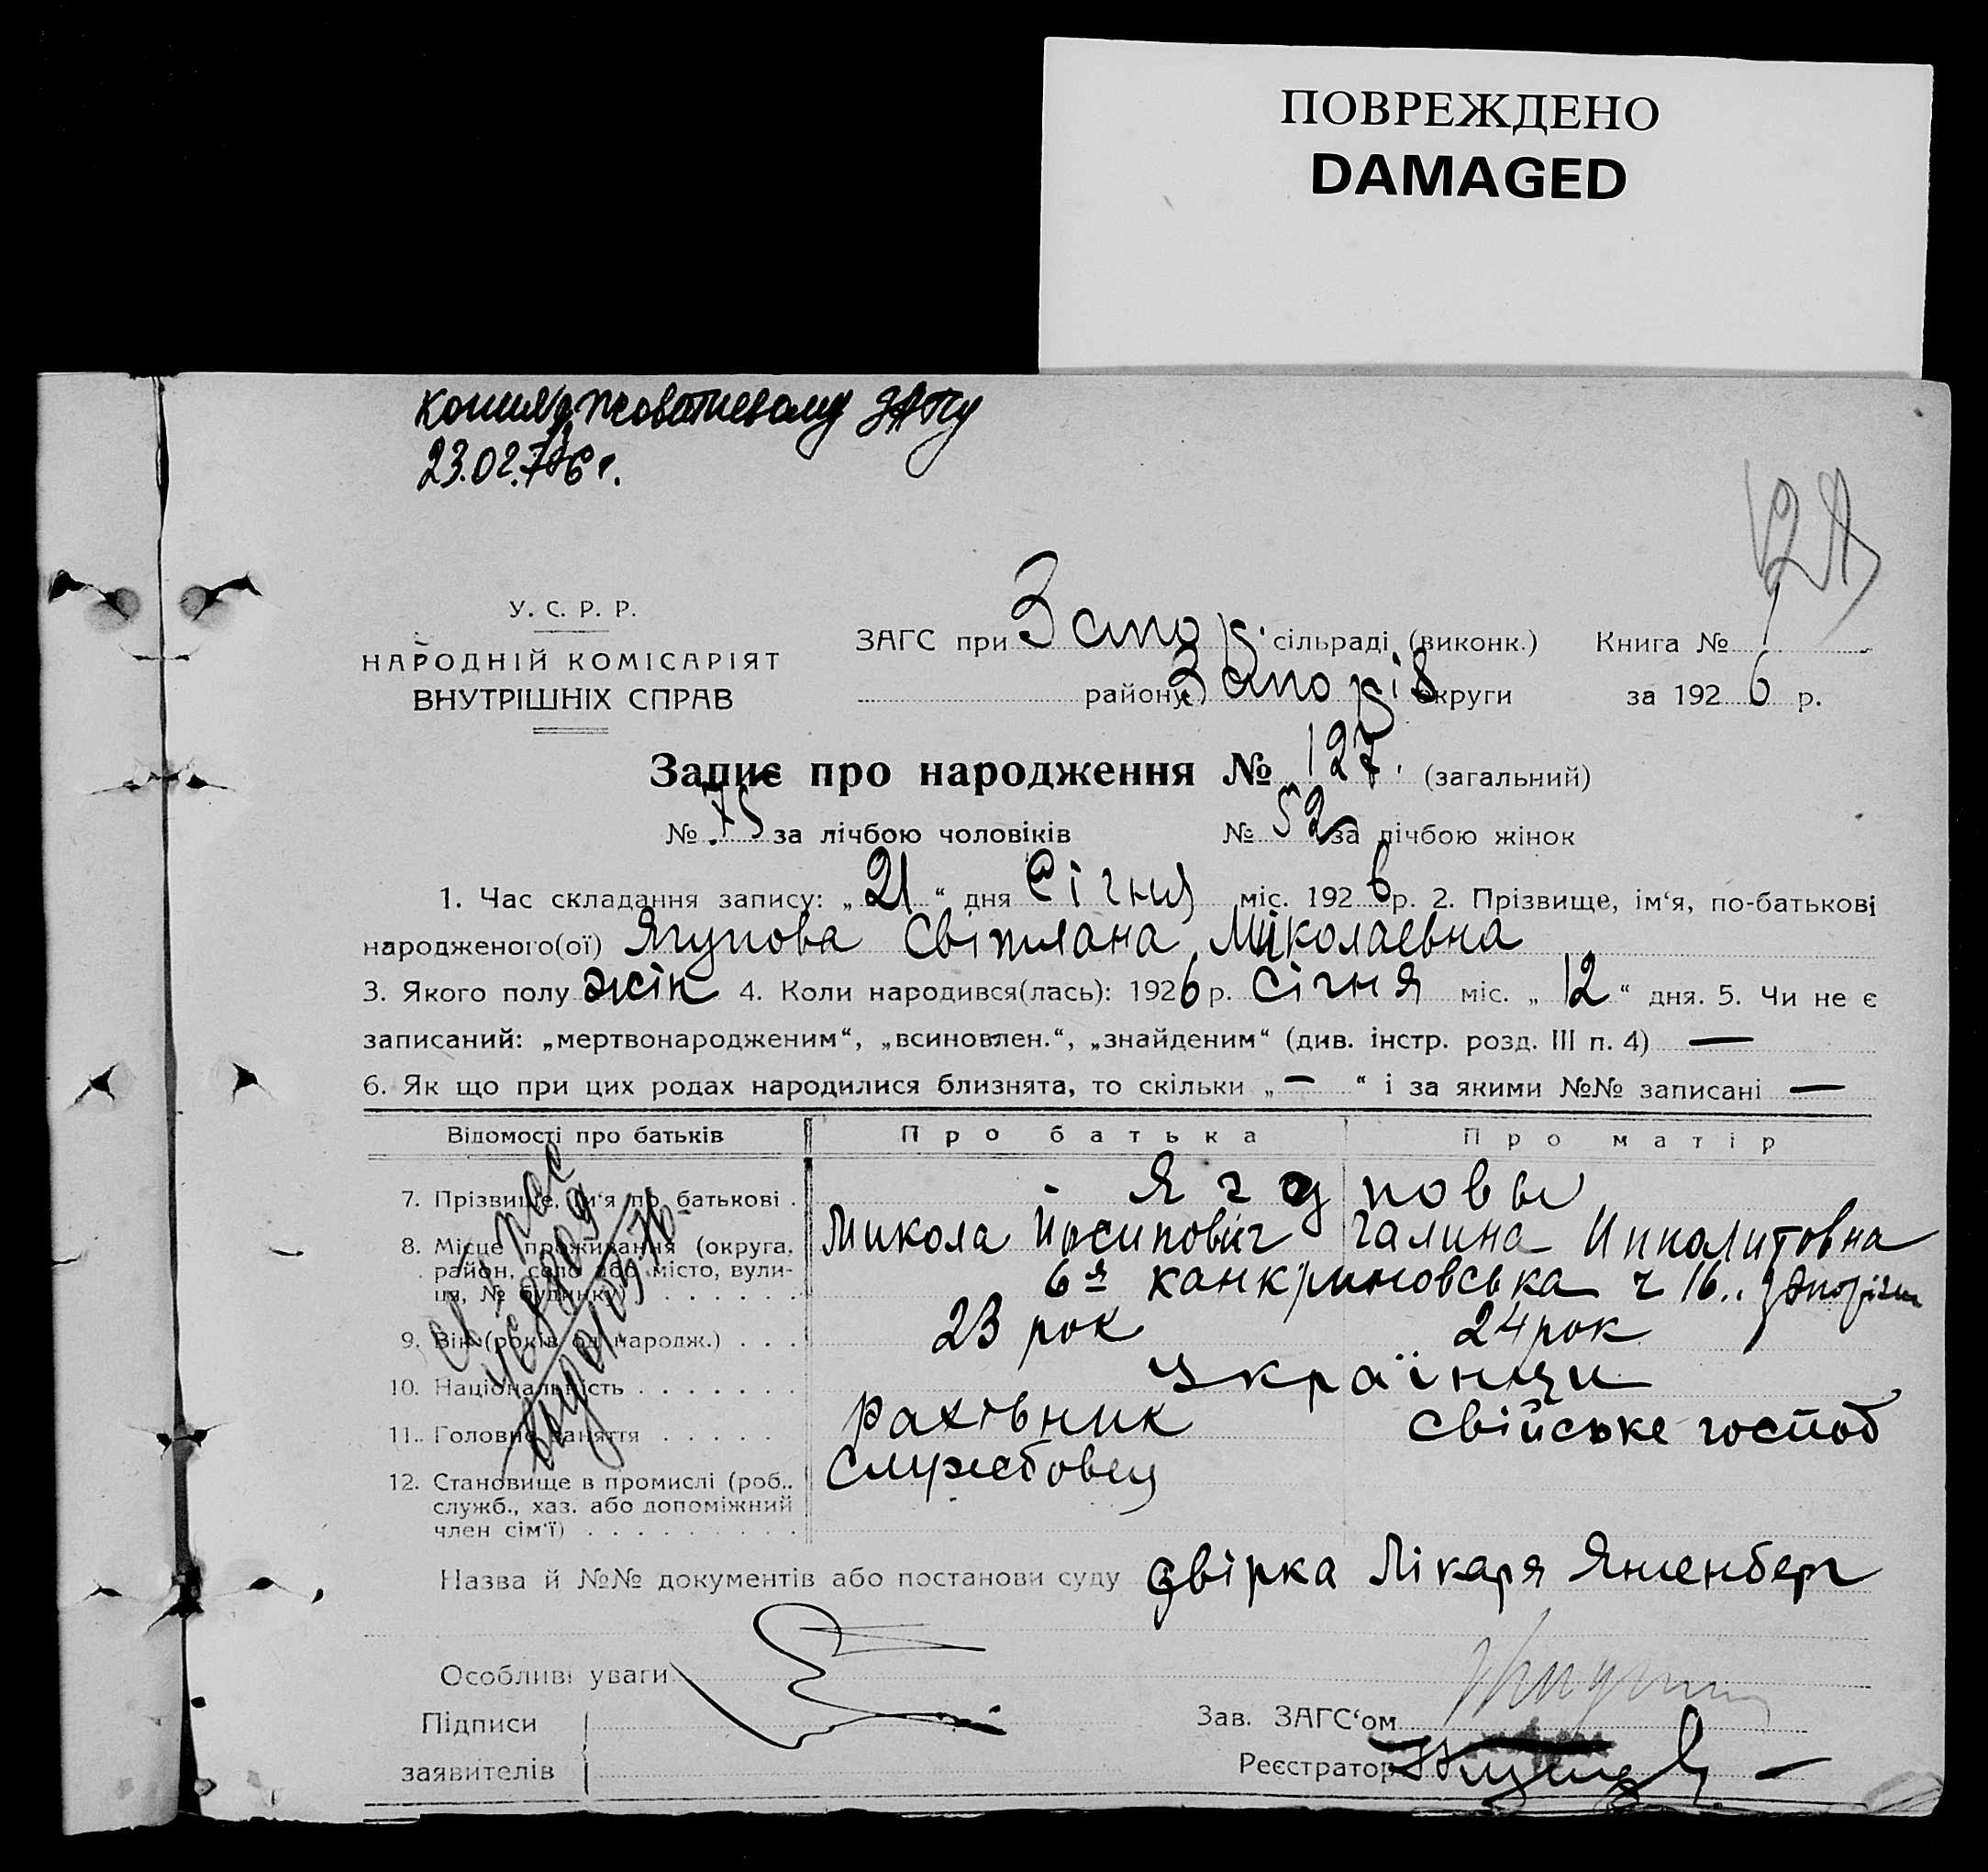 ПОВРЕЖДЕНО
DAMAGED
копия Жовтневому ЗАГСу
23.02.76 г.
У. С. Р. Р.
НАРОДНІЙ КОМІСАРІЯТ
ВНУТРІШНІХ СПРАВ
ЗАГС при Запор. сільраді (виконк.) Книга № 1
району Запорів округи за 1926 р.
Запис про народження № 127. (загальний)
№ 75 за лічбою чоловіків № 52 за лічбою жінок
1. Час складання запису: „21“ дня Січня міс. 1926 р. 2. Прізвище, ім‘я, по-батькові
народженого(ої) Ягупова Світлана Миколаевна
3. Якого полу жін 4. Коли народився(лась): 1926 р. Січня міс. „12“ дня. 5. Чи не є
записаний: „мертвонародженим“, „всиновлен.“, „знайденим“ (див. інстр. розд. III п. 4) —
6. Як що при цих родах народилися близнята, то скільки „—“ і за якими №№ записані —
Відомості про батьків Про батька Про матір
7. Прізвище, ім‘я по батькові . Ягуповы
Микола Йосипович Галина Ипполитовна
8. Місце проживання (округа, район, село або місто, вули-
ця, № будинку) . . . . . . 6я канкриновська ч 16..
9. Вік (років од народж.) . . . 23 рок 24 рок
10. Національність . . . . . . . Українци
11. Головне заняття . . . . . рахівник свійське господ
12. Становище в промислі (роб., Службовец
служб., хаз. або допоміжний
член сім‘ї) . . . . . . . . .
Назва й №№ документів або постанови суду двірка Лікаря Яненберг
Особливі уваги
Підписи Зав. ЗАГС‘ом
заявителів Реєстратор